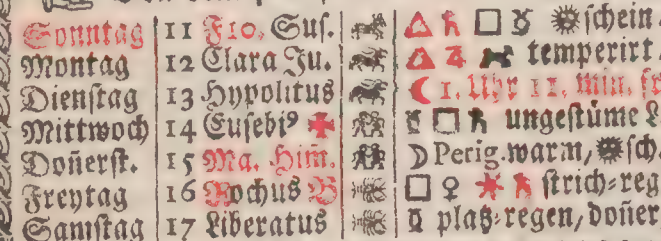 Sonntag 11 Flo. Suſ. △ ♄ □ ☿ ſchein
Montag 12 Clara Ju. △ ♃ temperirt.
Dienſtag 13 Hypolitus ☾ 1. Uhr 11. min. fr
Mittwoch 14 Euſebi⁹ □ ♄ ungeſtüme
Don̄erſt. 15 Ma. Him̄. ☽ Perig. warm, ſch.
Freytag 16 Rochus □ ♀ ⚹ ♄ ſtrich⸗reg
Samſtag 17 Liberatus platz⸗regen, don̄er